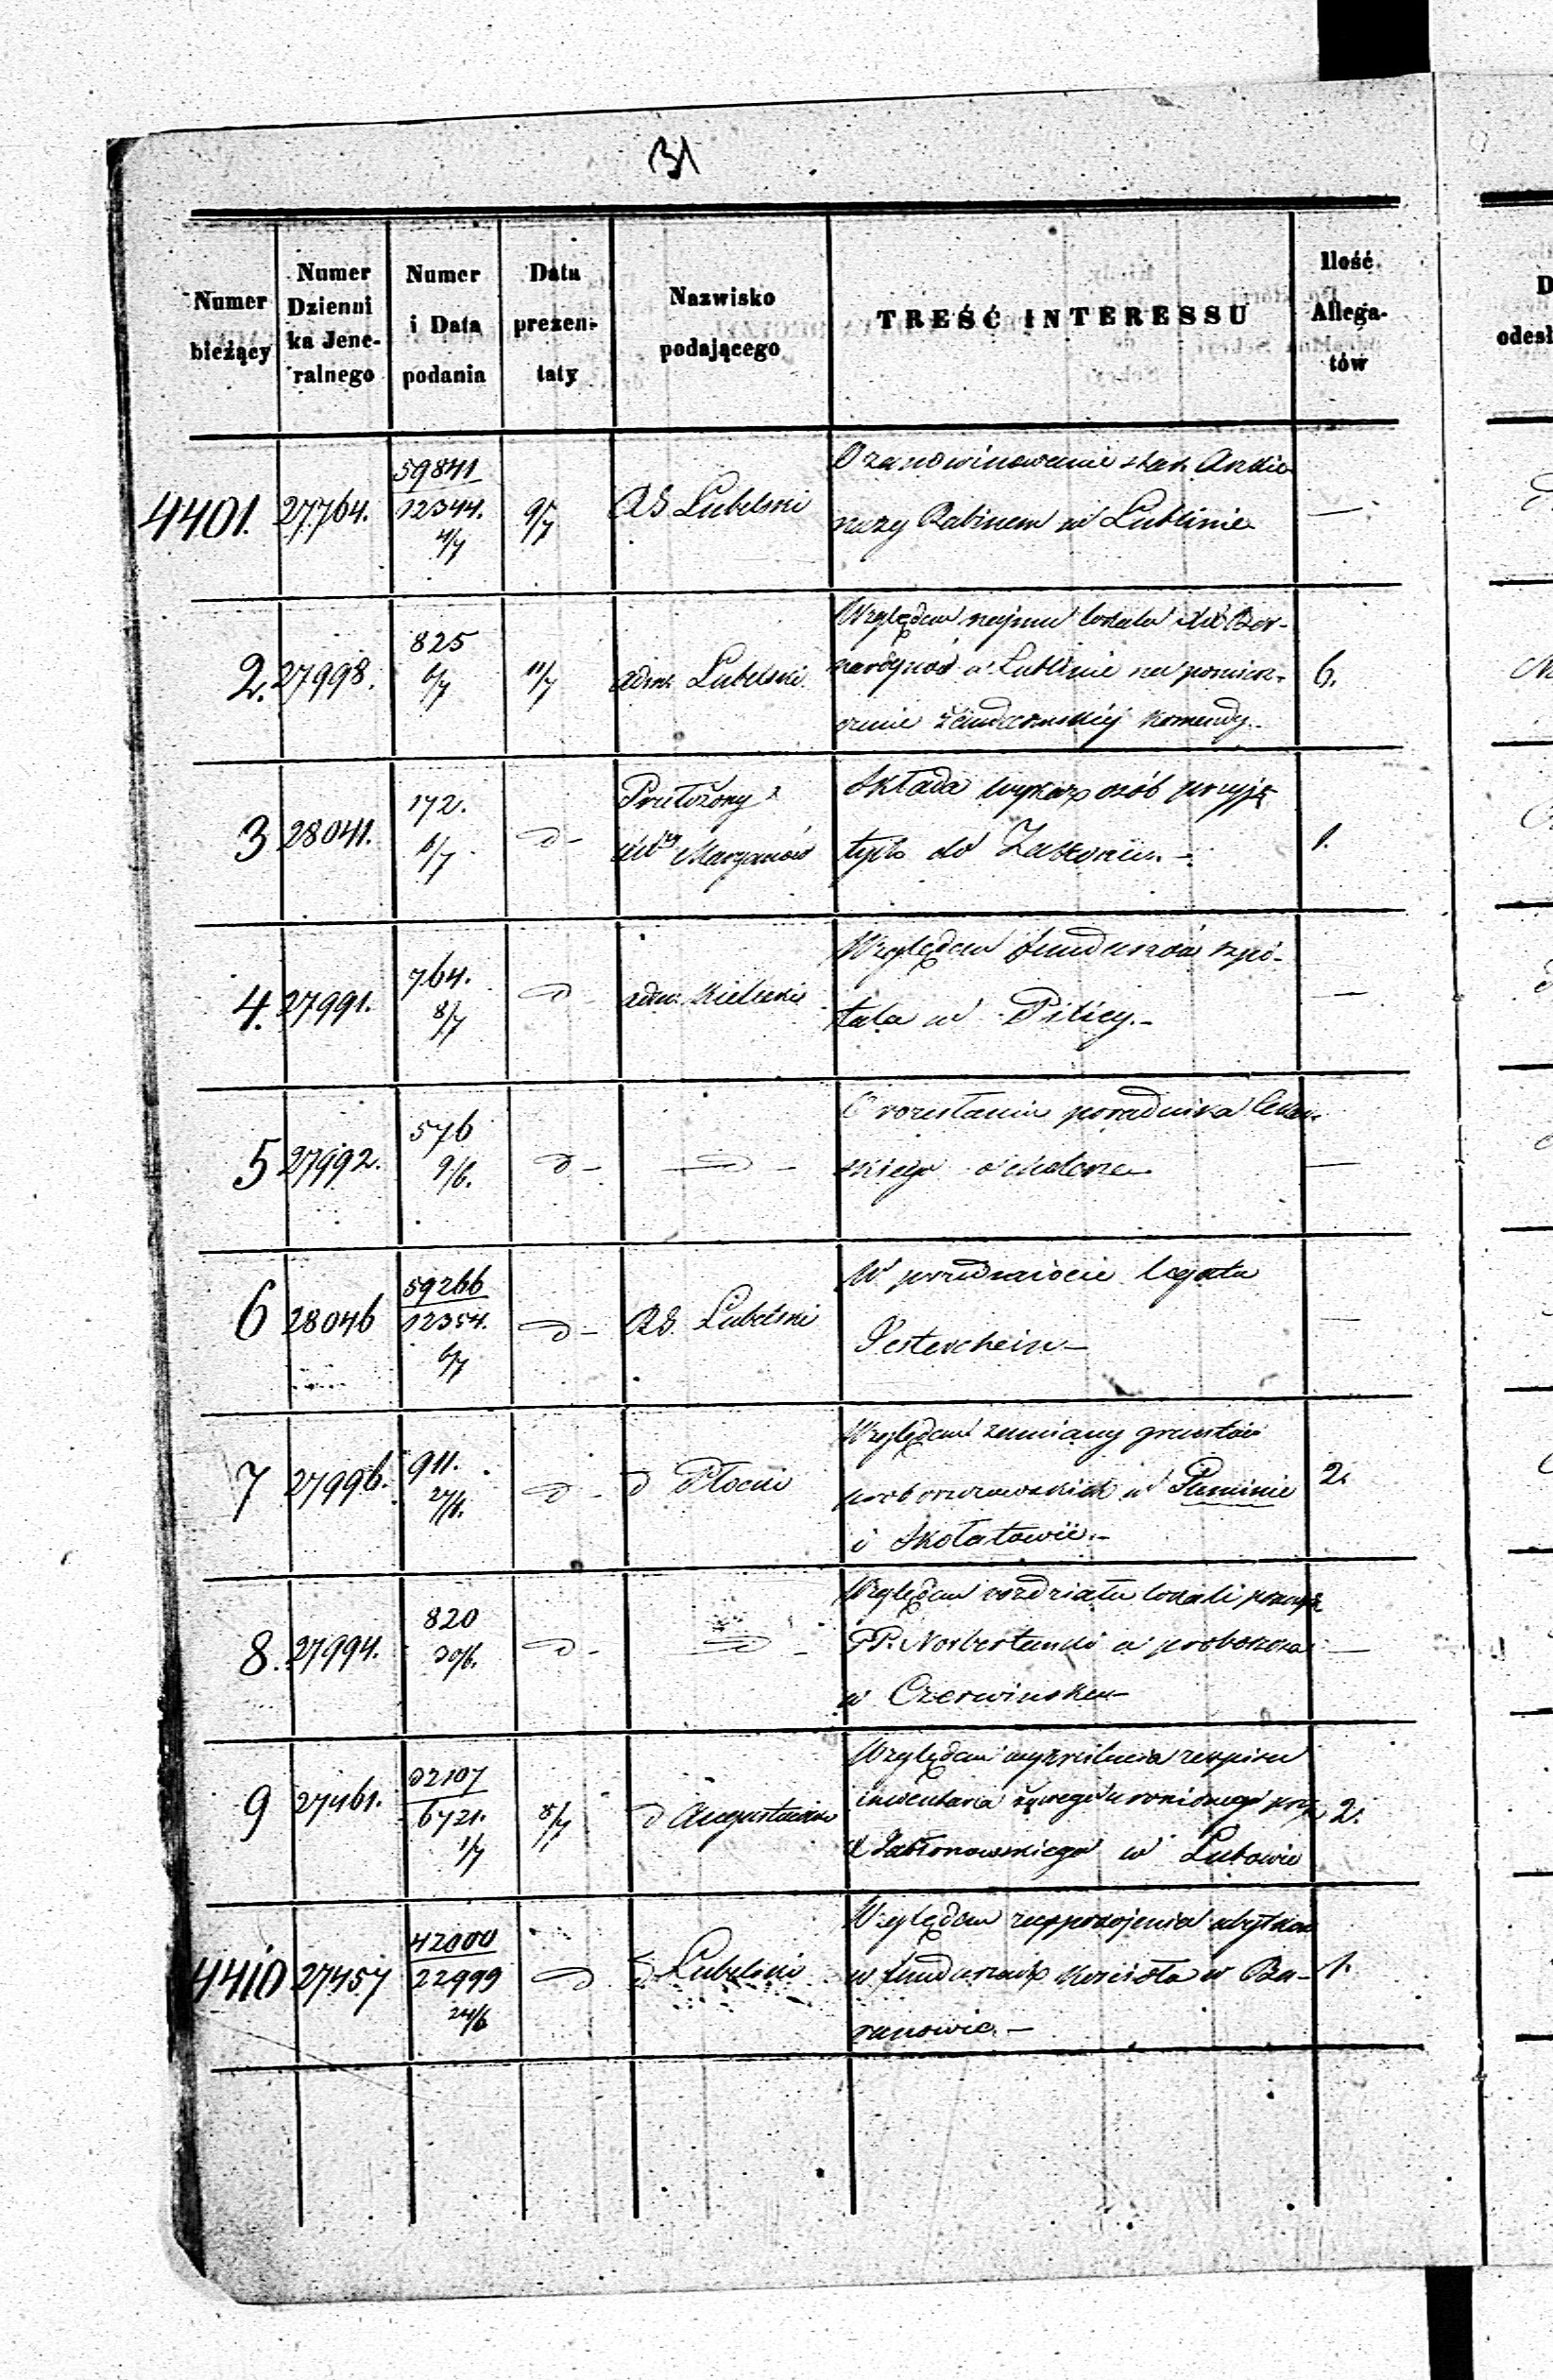 31
Numer bieżący | Numer Dzienni ka Jene- ralnego | Numer i Data podania | Data prezen- taty | Nazwisko podającego | TREŚĆ INTERESSU | Ilość Allega- tów
4401. | 27764. | 59841 / 12344. 4/7 | 9/7 | RG Lubelski | O zanominowanie
Rabinem w Lublinie | —
2. | 27998. | 825 6/7 | 11/7 | adm. Lubelski | Względem najmu lokalu Ber-
nardynów w Lublinie na pomiesz-
czenie żandarmskiej komendy. | 6.
3 | 28041. | 172. 6/7 | d - | Przełożony
Maryanów | Składa wykaz osób przyję
tych do Zakonu. - | 1.
4. | 27991. | 764. 8/7 | d - | adm. Kielecki | Względem funduszów szpi-
tala w Pilicy. - | —
5 | 27992. | 576 9/6. | d - | — d — | O rozesłaniu poradnika lekar-
skiego o cholerze | —
6 | 28046 | 59266 / 12354. 6/7 | d - | RG. Lubelski | W przedmiocie legatu
— | —
7 | 27996. | 911. 27/6. | d - | d Płocki | Względem zamiany gruntów
proboszczowskich w
i Skołatowie. - | 2.
8. | 27994. | 820 30/6. | d - | — d — | Względem rozdziału lokali
PP. Norbertanki a proboszcza
w Czerwińsku — | —
9 | 27461. | 32107 / 6721. 1/7 | 8/7 | d Augustowski | Względem
inwentarza
Jabłonowskiego w Lubowie | 2.
4410 | 27457 | 42000 / 22999 24/6 | d | d Lubelski | Względem
w funduszach kościoła w Ba-
ranowie. — | 1.
D
odesł